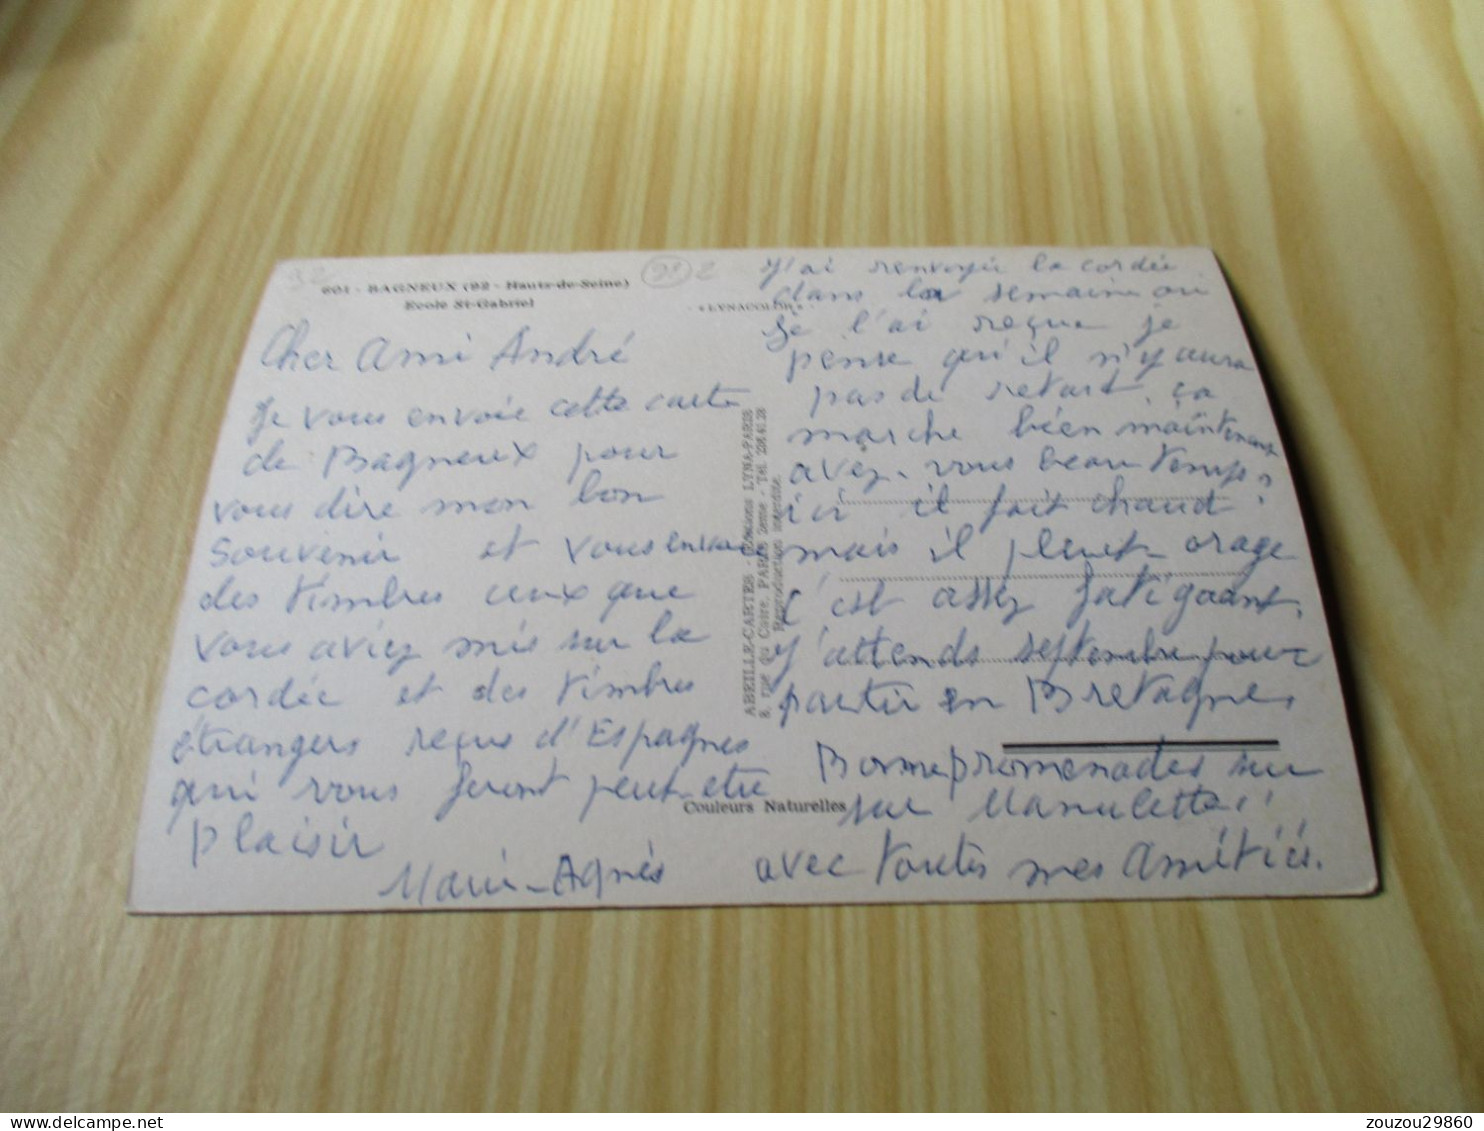 601 - BAGNEUX (92 - Hauts-de-Seine)
Ecole St-Gabriel
92
2
"LYNACOLOR"
Cher Ami André
Je vous envoie cette carte
de Bagneux pour
vous dire mon bon
souvenir et vous envoie
des timbres ceux que
vous aviez mis sur la
cordée et des timbres
étrangers reçus d'Espagnes
qui vous feront peut-etre
plaisir
Marie-Agnès
ABEILLE-CARTES - Editions LYNA-PARIS
8, rue du Caire, PARIS 2eme - Tél. 236 41 28
Reproduction interdite.
Couleurs Naturelles
J'ai renvoyée la cordée
dans la semaine où
je l'ai reçue je
pense qu'il n'y aura
pas de retart, ça
marche bien maintenant
avez-vous beau temps?
ici il fait chaud
mais il pleut - orage
c'est assez fatigant.
J'attends septembre pour
partir en Bretagnes
Bonne promenades sur
sur Manulette!!
avec toutes mes Amitiés.
zouzou29860